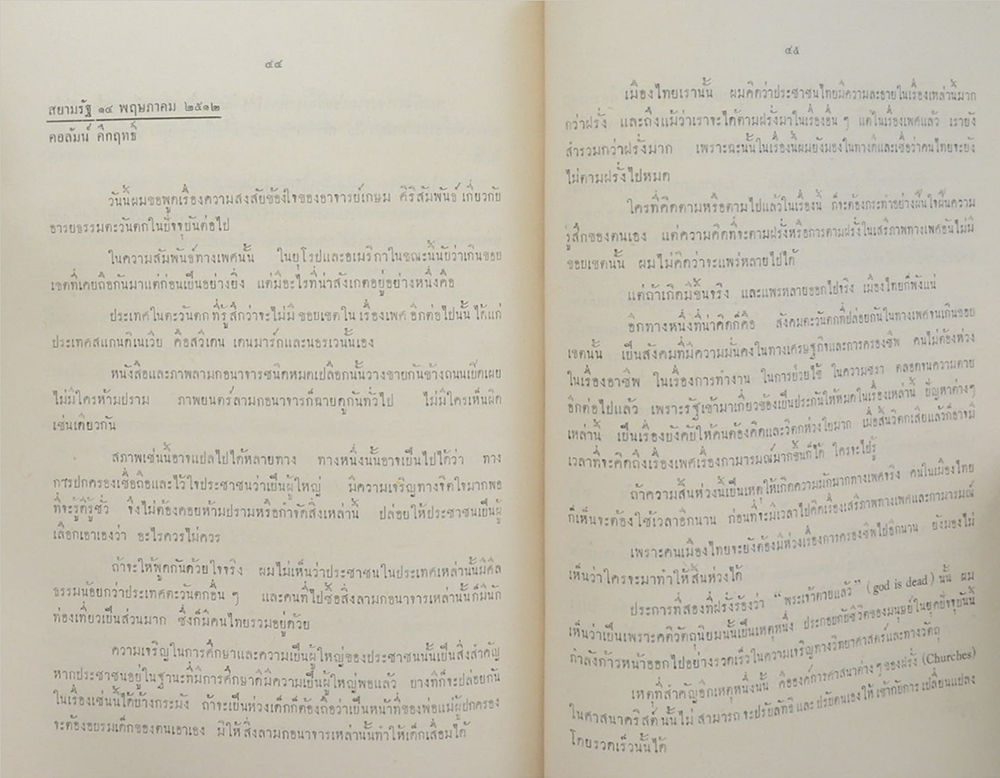 ๔๔
สยามรัฐ ๑๔ พฤษภาคม ๒๕๑๒
คอลัมน์ คึกฤทธิ์
วันนี้ผมขอพูดเรื่องความสงสัยข้องใจของอาจารย์เกษม ศิริสัมพันธ์ เกี่ยวกับ
อารยธรรมตะวันตกในปัจจุบันต่อไป
ในความสัมพันธ์ทางเพศนั้น ในยุโรปและอเมริกาในขณะนี้นับว่าเกินขอบ
เขตที่เคยถือกันมาแต่ก่อนเป็นอย่างยิ่ง แต่มีอะไรที่น่าสังเกตอยู่อย่างหนึ่งคือ
ประเทศในตะวันตก ที่รู้สึกว่าจะไม่มี ขอบเขตใน เรื่องเพศ อีกต่อไปนั้น ได้แก่
ประเทศสแกนดิเนเวีย คือสวีเดน เดนมาร์กและนอรเวนั้นเอง
หนังสือและภาพลามกอนาจารชนิดหมดเปลือกนั้นวางขายกันข้างถนนเปิดเผย
ไม่มีใครห้ามปราม ภาพยนตร์ลามกอนาจารก็ฉายดูกันทั่วไป ไม่มีใครเห็นผิด
เช่นเดียวกัน
สภาพเช่นนี้อาจแปลไปได้หลายทาง ทางหนึ่งนั้นอาจเป็นไปได้ว่า ทาง
การปกครองเชื่อถือและไว้ใจประชาชนว่าเป็นผู้ใหญ่ มีความเจริญทางจิตใจมากพอ
ที่จะรู้ดีรู้ชั่ว จึงไม่ต้องคอยห้ามปรามหรือกำจัดสิ่งเหล่านี้ ปล่อยให้ประชาชนเป็นผู้
เลือกเอาเองว่า อะไรควรไม่ควร
ถ้าจะให้พูดกันด้วยใจจริง ผมไม่เห็นว่าประชาชนในประเทศเหล่านั้นมีศีล
ธรรมน้อยกว่าประเทศตะวันตกอื่น ๆ และคนที่ไปซื้อสิ่งลามกอนาจารเหล่านั้นก็มีนัก
ท่องเที่ยวเป็นส่วนมาก ซึ่งก็มีคนไทยรวมอยู่ด้วย
ความเจริญในการศึกษาและความเป็นผู้ใหญ่ของประชาชนนั้นเป็นสิ่งสำคัญ
หากประชาชนอยู่ในฐานะที่มีการศึกษาดีมีความเป็นผู้ใหญ่พอแล้ว บางทีก็จะปล่อยกัน
ในเรื่องเช่นนี้ได้บ้างกระมัง ถ้าจะเป็นห่วงเด็กก็ต้องถือว่าเป็นหน้าที่ของพ่อแม่ผู้ปกครอง
จะต้องอบรมเด็กของตนเอาเอง มิให้สิ่งลามกอนาจารเหล่านั้นทำให้เด็กเสื่อมได้
๔๕
เมืองไทยเรานั้น ผมคิดว่าประชาชนไทยมีความละอายในเรื่องเหล่านี้มาก
กว่าฝรั่ง และถึงแม้ว่าเราจะได้ตามฝรั่งมาในเรื่องอื่น ๆ แต่ในเรื่องเพศแล้ว เรายัง
สำรวมกว่าฝรั่งมาก เพราะฉะนั้นในเรื่องนี้ผมยังมองในทางดีและเชื่อว่าคนไทยจะยัง
ไม่ตามฝรั่งไปหมด
ใครที่คิดตามหรือตามไปแล้วในเรื่องนี้ ก็จะต้องกระทำอย่างฝืนใจฝืนความ
รู้สึกของตนเอง แต่ความคิดที่จะตามฝรั่งหรือการตามฝรั่งในเสรีภาพทางเพศอันไม่มี
ขอบเขตนั้น ผมไม่คิดว่าจะแพร่หลายไปได้
แต่ถ้าเกิดมีขึ้นจริง และแพร่หลายออกไปจริง เมืองไทยก็พังแน่
อีกทางหนึ่งที่น่าคิดก็คือ สังคมตะวันตกที่ปล่อยกันในทางเพศจนเกินขอบ
เขตนั้น เป็นสังคมที่มีความมั่นคงในทางเศรษฐกิจและการครองชีพ คนไม่ต้องห่วง
ในเรื่องอาชีพ ในเรื่องการทำงาน ในการป่วยไข้ ในความชรา ตลอดจนความตาย
อีกต่อไปแล้ว เพราะรัฐเข้ามาเกี่ยวข้องเป็นประกันให้หมดในเรื่องเหล่านี้ ปัญหาต่างๆ
เหล่านี้ เป็นเรื่องบังคับให้คนต้องคิดและวิตกห่วงใยมาก เมื่อสิ้นวิตกเสียแล้วก็อาจมี
เวลาที่จะคิดถึงเรื่องเพศเรื่องกามารมณ์มากขึ้นก็ได้ ใครจะไปรู้
ถ้าความสิ้นห่วงนี้เป็นเหตุให้เกิดความมักมากทางเพศจริง คนในเมืองไทย
ก็เห็นจะต้องใช้เวลาอีกนาน ก่อนที่จะมีเวลาไปคิดเรื่องเสรีภาพทางเพศและกามารมณ์
เพราะคนเมืองไทยจะยังต้องมีห่วงเรื่องการครองชีพไปอีกนาน ยังมองไม่
เห็นว่าใครจะมาทำให้สิ้นห่วงได้
ประการที่สองที่ฝรั่งร้องว่า “พระเจ้าตายแล้ว” (god is dead) นั้น ผม
เห็นว่าเป็นเพราะคติวัตถุนิยมนั้นเป็นเหตุหนึ่ง ประกอบกับชีวิตของมนุษย์ในยุคปัจจุบันนี้
กำลังก้าวหน้าออกไปอย่างรวดเร็วในความเจริญทางวิทยาศาสตร์และทางวัตถุ
เหตุที่สำคัญอีกเหตุหนึ่งนั้น คือองค์การศาสนาต่าง ๆ ของฝรั่ง (Churches)
ในศาสนาคริสต์นั้นไม่ สามารถ จะปรับลัทธิ และ ปรับตนเองให้ เข้ากับการ เปลี่ยนแปลง
โดยรวดเร็วนั้นได้